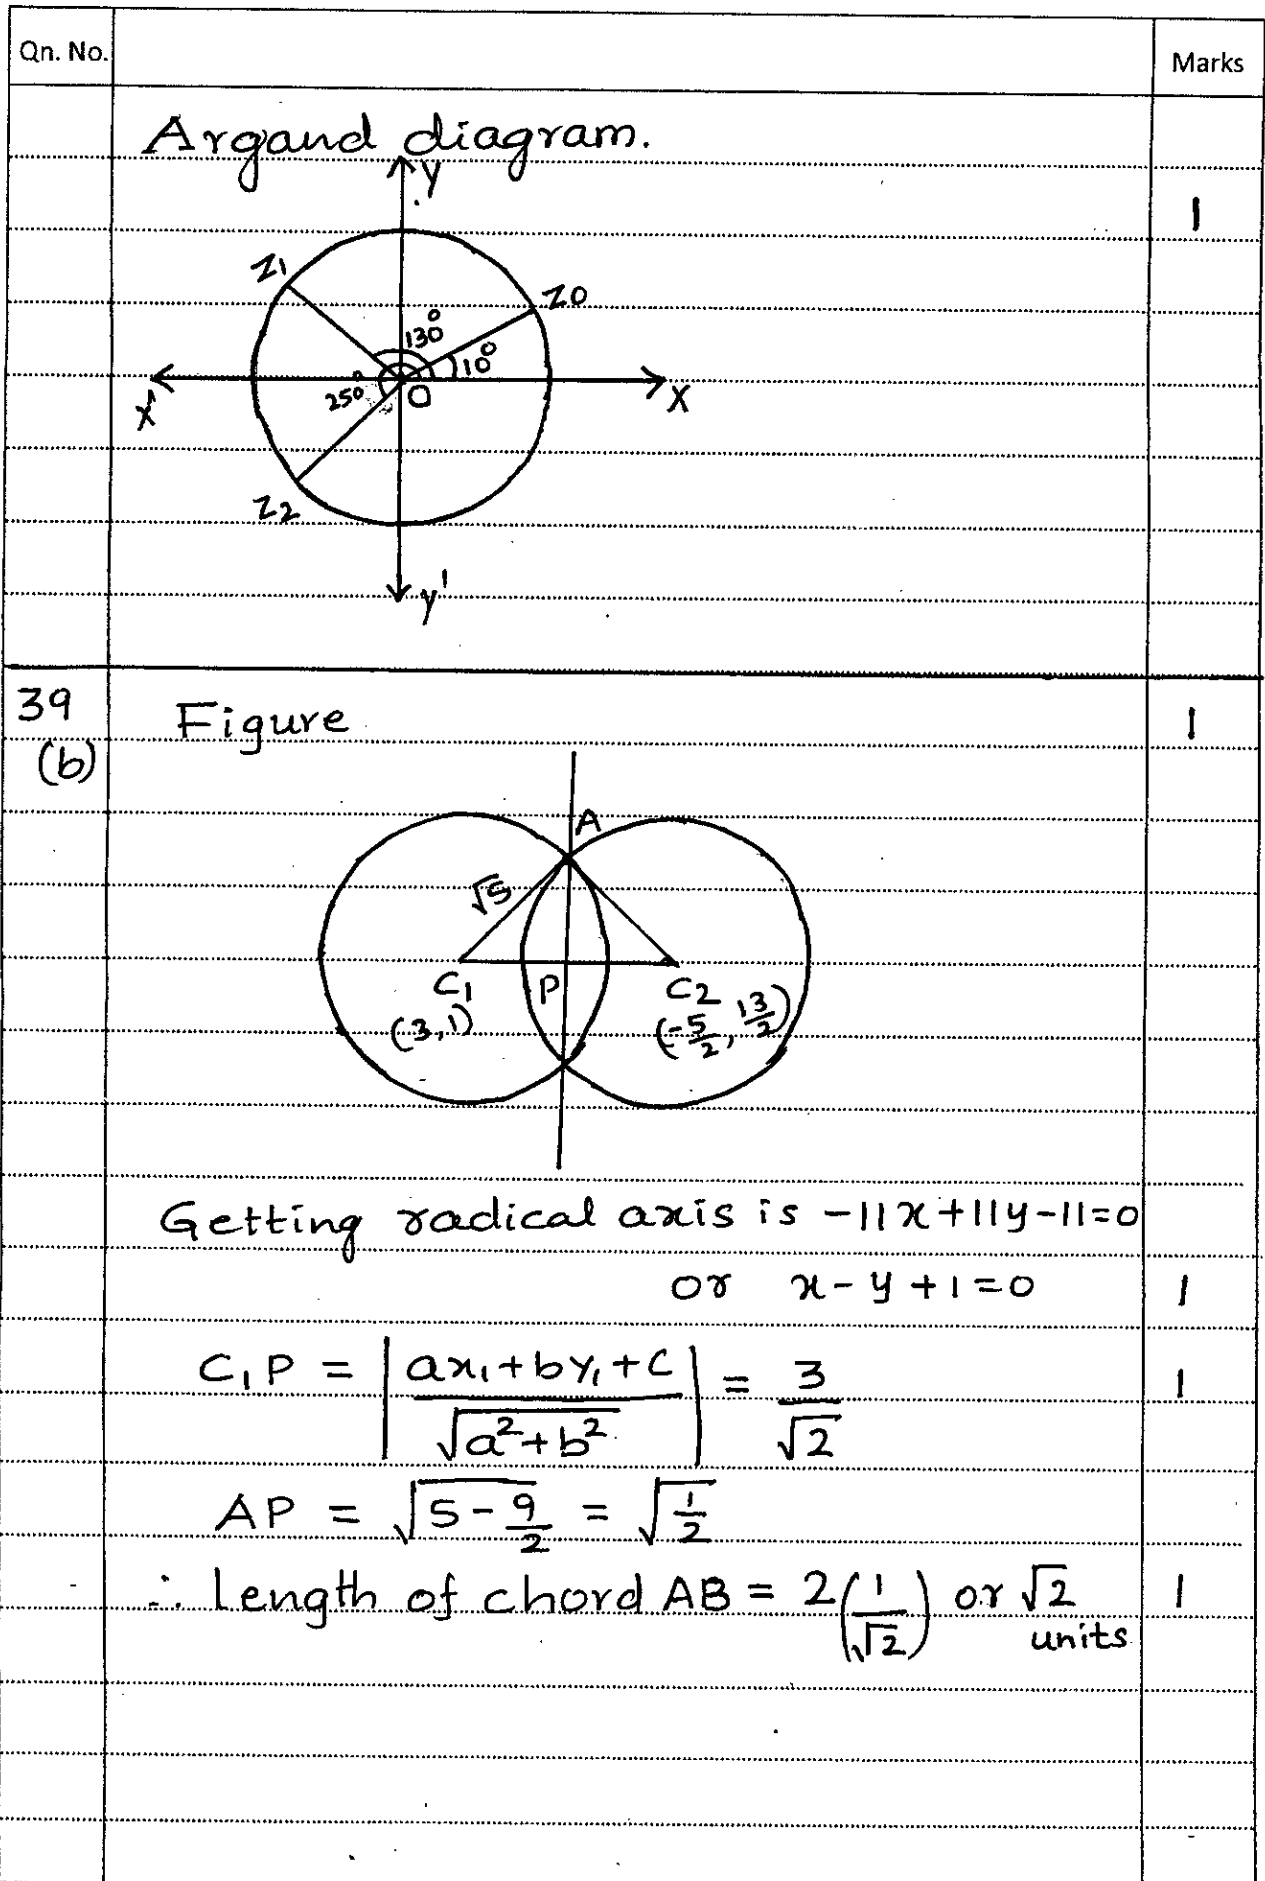 Qn. No. Marks
Argand diagram.
Y
1
Z1
Z0
130°
10°
250°
O
X'
X
Z2
y'
39 Figure 1
(b)
A
√5
C1 P C2
(3,1) (-5/2, 13/2)
Getting radical axis is -11x+11y-11=0
or x-y+1=0 1
C₁P = |ax₁+by₁+c / √(a²+b²)| = 3/√2 1
AP = √(5-9/2) = √(1/2)
∴ Length of chord AB = 2(1/√2) or √2 1
units